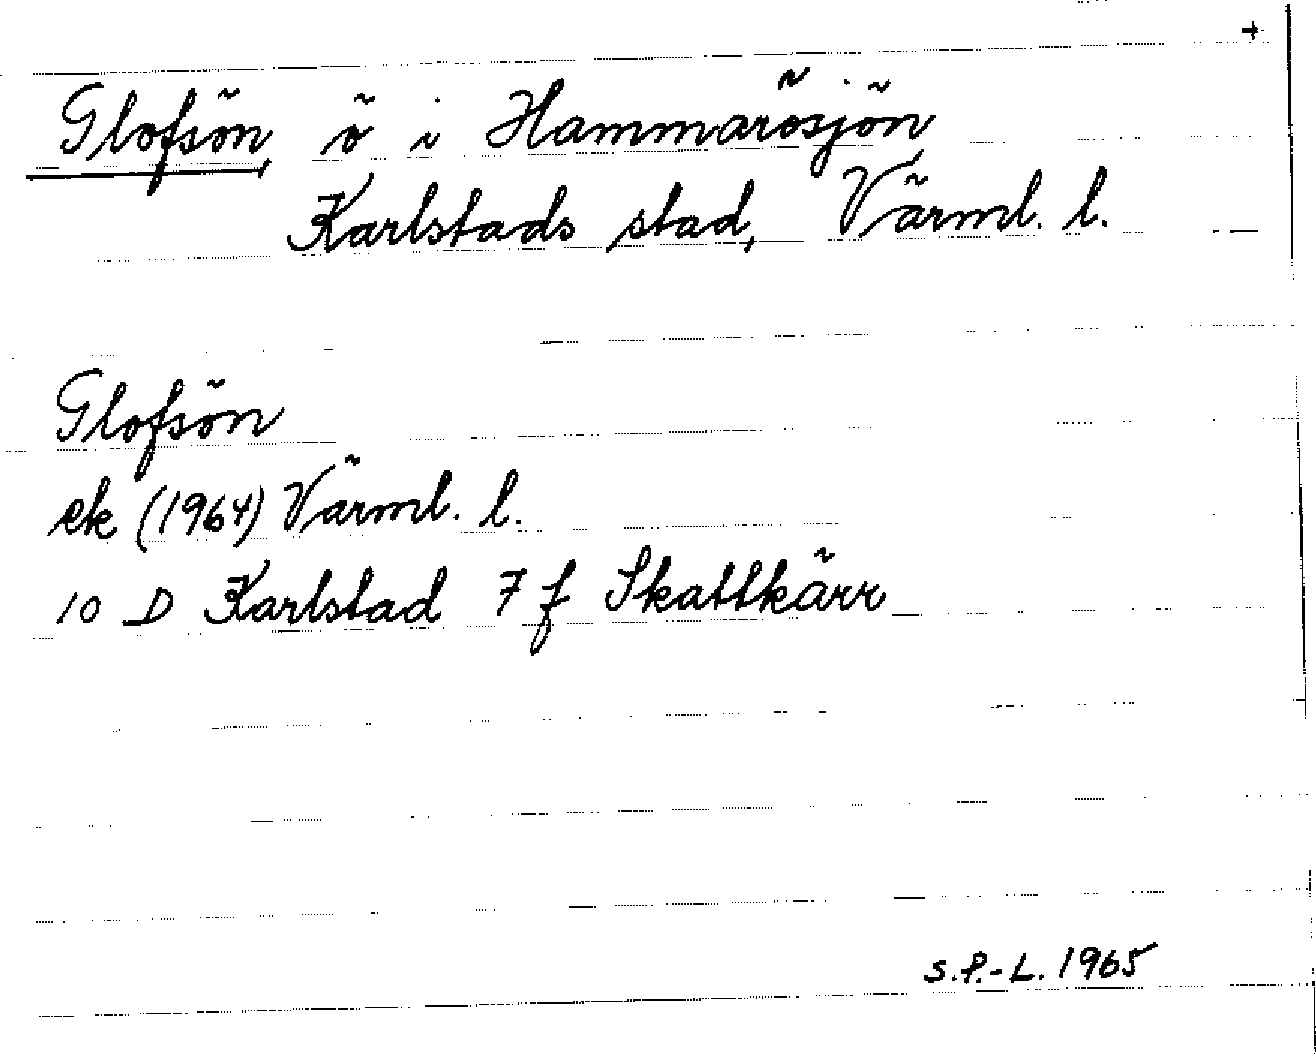 +
Glofsön, ö i Hammarösjön
Karlstads stad, Värml. l.
Glofsön
ek (1964) Värml. l.
10 D Karlstad 7 f Skattkärr
S.P.-L. 1965